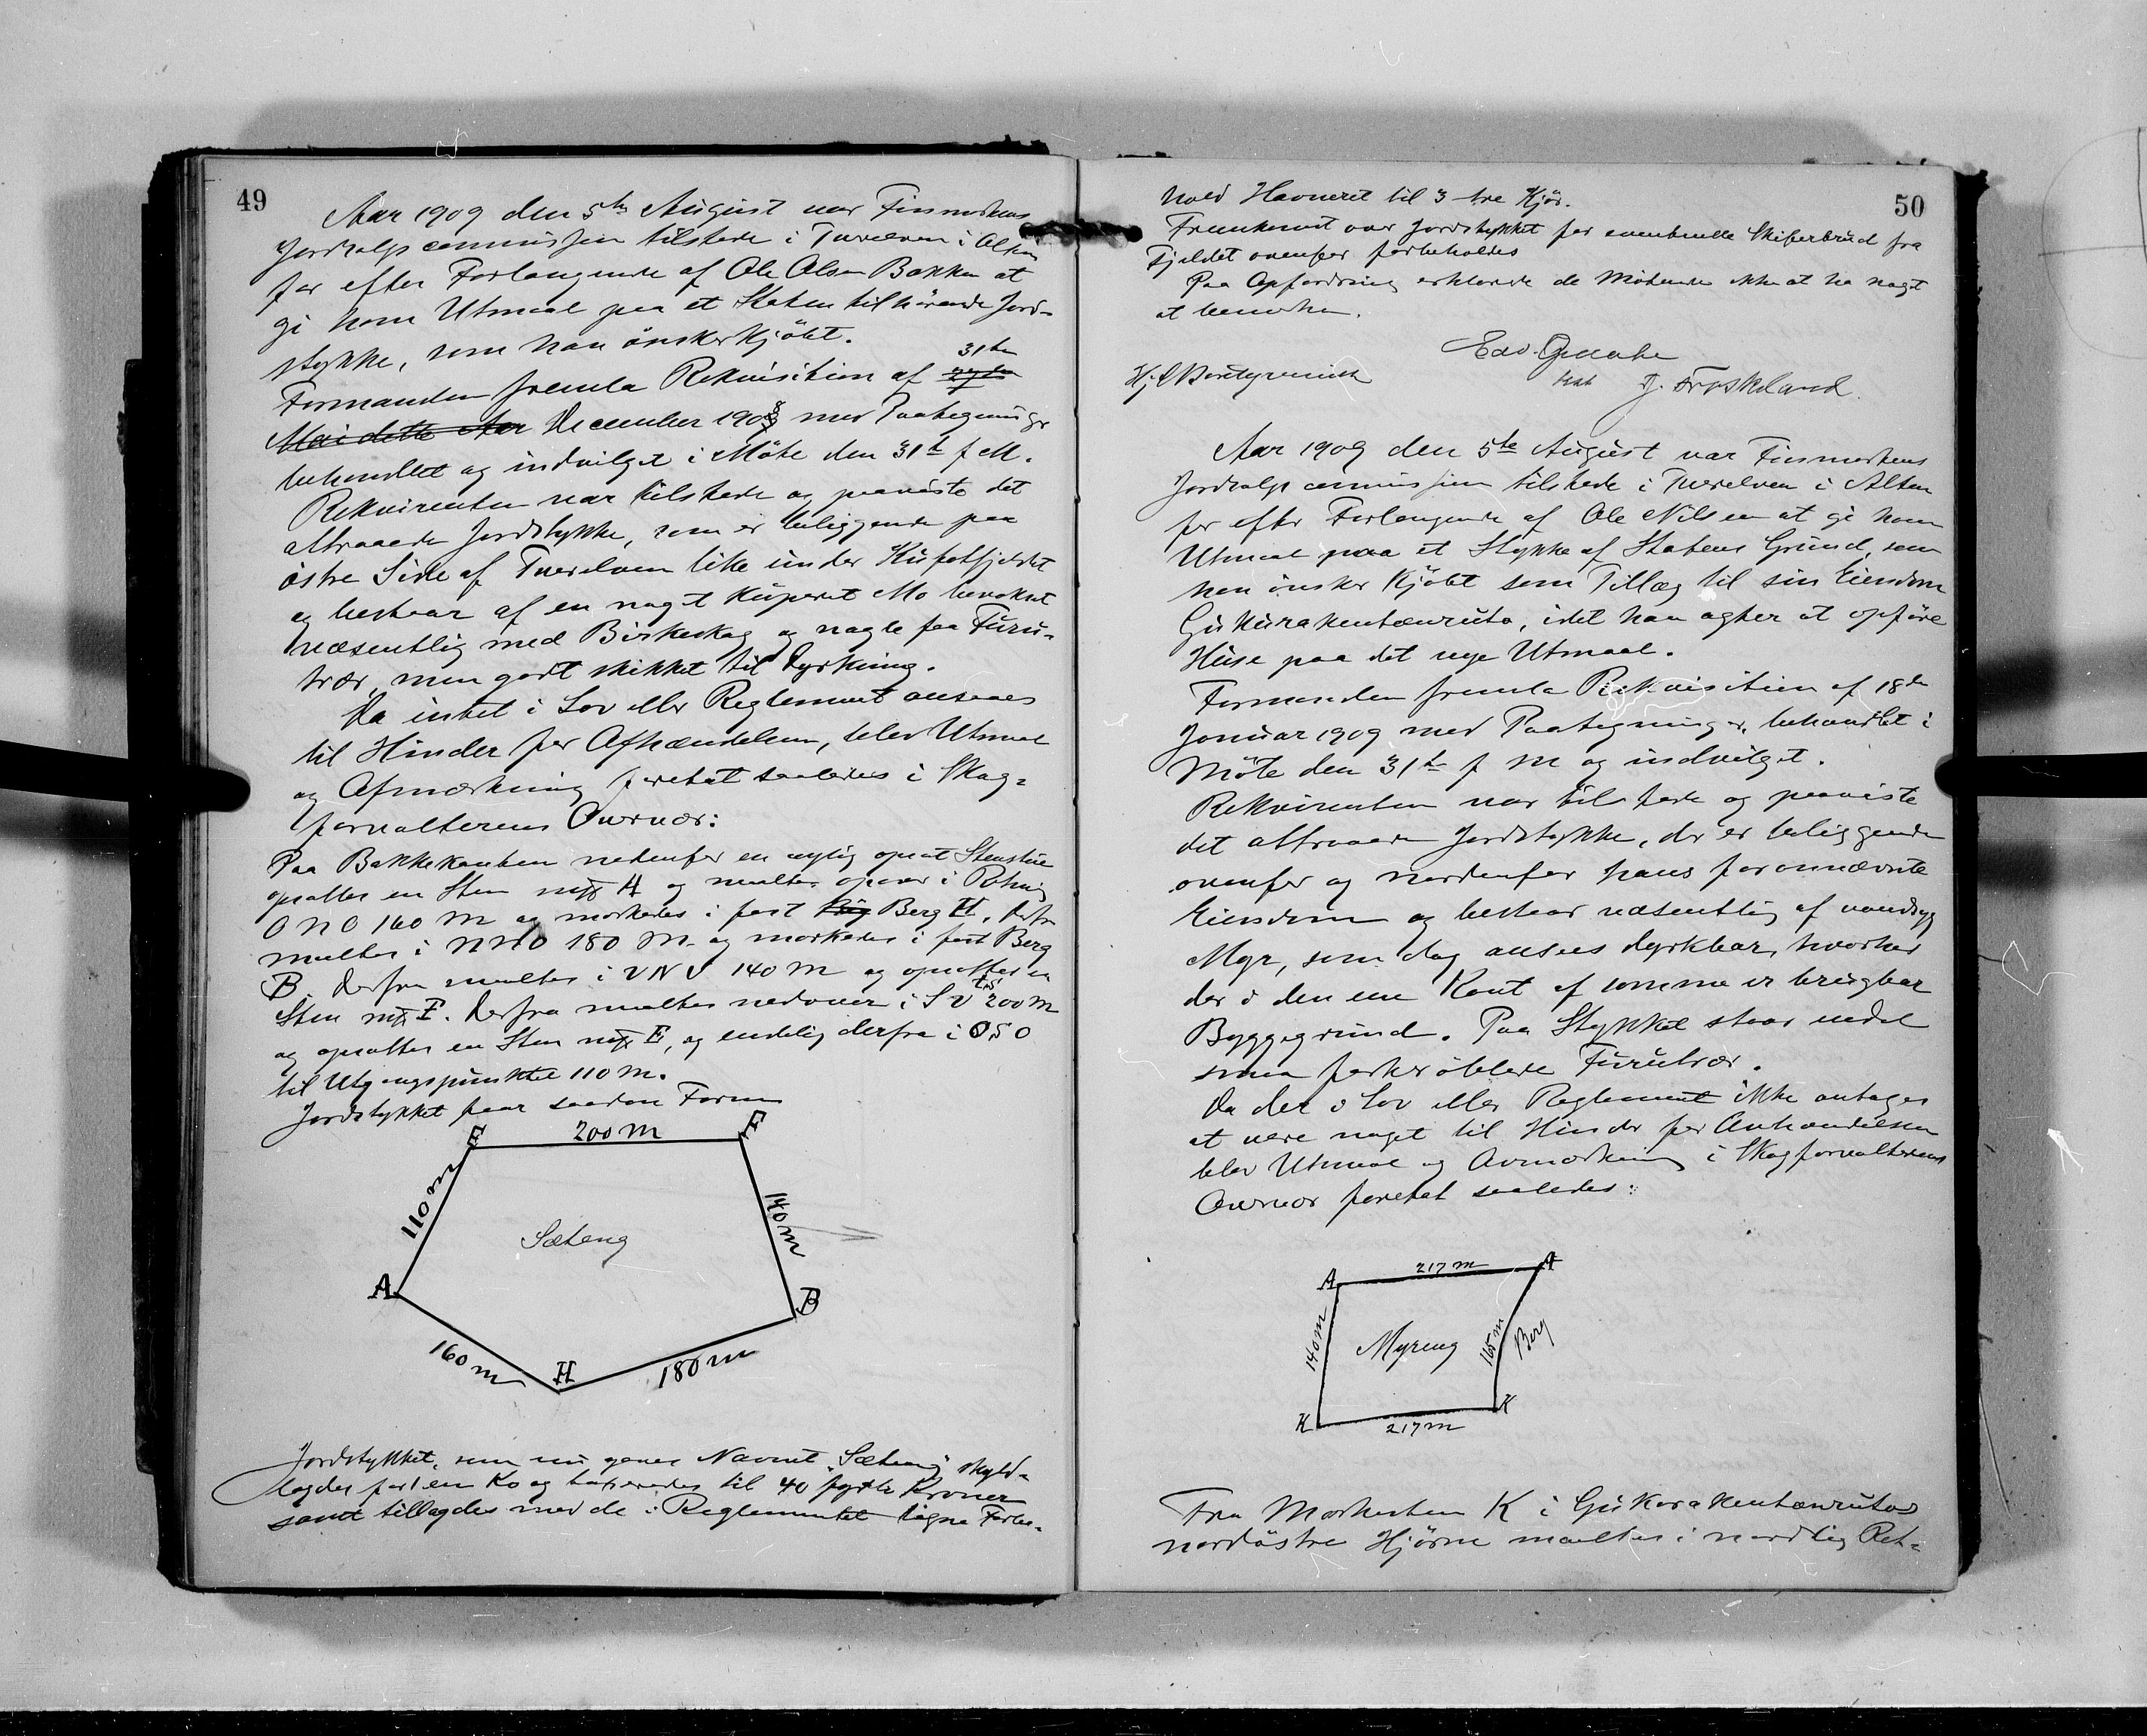 49
Aar 1909 den 5te August var Finmarkens
Jordsalgscommission tilstede i Tverelven i Alten
for efter Forlangende af Ole Olsen Bakken at
gi ham Utmaal paa et Staten tilhörende Jord-
stykke, som han önsker kjöbt.
31te
Formanden fremla Rekvisition af
Mai dette Aar December 1908 med Paategninger
behandlet og indvilget i Möte den 31te f M.
Rekvirenten var tilstede og paaviste det
attraaede Jordstykke, som er beliggende paa
östre Side af Tverelven like under Kufotfjeldet
og bestaar af en noget kuperet Mo bevokset
væsentlig med Birkeskog og nogle faa Furu-
trær, men godt skikket til Dyrkning.
Da intet i Lov eller Reglement ansaaes
til Hinder for Afhændelsen, blev Utmaal
og Afmerkning foretat saaledes i Skog-
forvalterens Overvær:
Paa Bakkekanten nedenfor en nylig opsat Stenstue
opsattes en Sten mrk A og maaltes opover i Retning
O N O 160 m og merkedes i fast Berg H, derfra
maaltes i N N O 180 m og merkedes i fast Berg
B. Derfra maaltes i V N V 140 m og opsattes en
Sten mrk F. Derfra maaltes nedover i S V 200 m
og opsattes en Sten mrk E, og endelig derfra i O S O
til Utgangspunktet 110 m.
Jordstykket faar saadan Form
E 200 m F
110 m
140 m
Sæteng
A
B
160 m
H
180 m
Jordstykket, som nu gives Navnet "Sæteng" skyld-
lagdes for 1 en Ko og taxeredes til 40 förti Kroner
samt tillagdes med de i Reglementet tagne Forbe-
50
hold Havneret til 3 tre Kjör.
Fremkomst over Jordstykket for eventuelle Skiferbrud fra
Fjeldet ovenfor forbeholdes
Paa Opfordring erklærede de Mödende ikke at ha noget
at bemerke.
Edv.
J. Froskeland.
Aar 1909 den 5te August var Finmarkens
Jordsalgscommission tilstede i Tverelven i Alten
for efter Forlangende af Ole Nilsen at gi ham
Utmaal paa et Stykke af Statens Grund, som
han önsker kjöbt som Tillæg til sin Eiendom
Gukurakentænruto, idet han agter at opföre
Huse paa det nye Utmaal.
Formanden fremla Rekvisition af 18de
Januar 1909 med Paategninger, behandlet i
Möte den 31te f M og indvilget.
Rekvirenten var tilstede og paaviste
det attraaede Jordstykke, der er beliggende
ovenfor og nordenfor hans forannævnte
Eiendom og bestaar væsentlig af vandsyg
Myr, som dog ansees dyrkbar, hvorhos
der i den ene Kant af samme er brugbar
Byggegrund. Paa Stykket staar endel
smaa forkröblede Furutrær.
Da der i Lov eller Reglement ikke antages
at være noget til Hinder for Avhændelsen
blev Utmaal og Avmerkning i Skogforvalterens
Overvær foretat saaledes:
A 217 m A
140 m
Myreng
165 m
Berg
K
217 m
K
Fra Merkesten K i Gukorakentænrutos
nordöstre Hjörne maaltes i nordlig Ret-